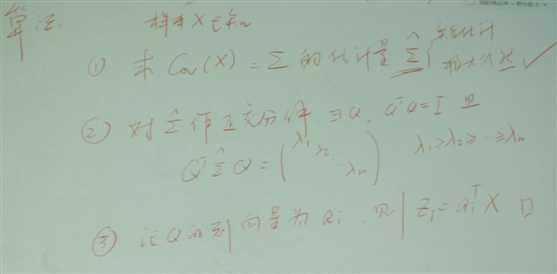 算法: 样本 X 已知
① 求 Cov(X) = Σ 的估计量 Σ̂ { 矩估计 极大似然 ✓
② 对 Σ̂ 作正交分解 ∃Q, QᵀQ = I 且
QᵀΣ̂Q = (λ₁ λ₂ ⋱ λₙ) λ₁ ≥ λ₂ ≥ … ≥ λₙ
③ 记 Q 的列向量为 qᵢ, 则 Zᵢ = qᵢᵀ X □